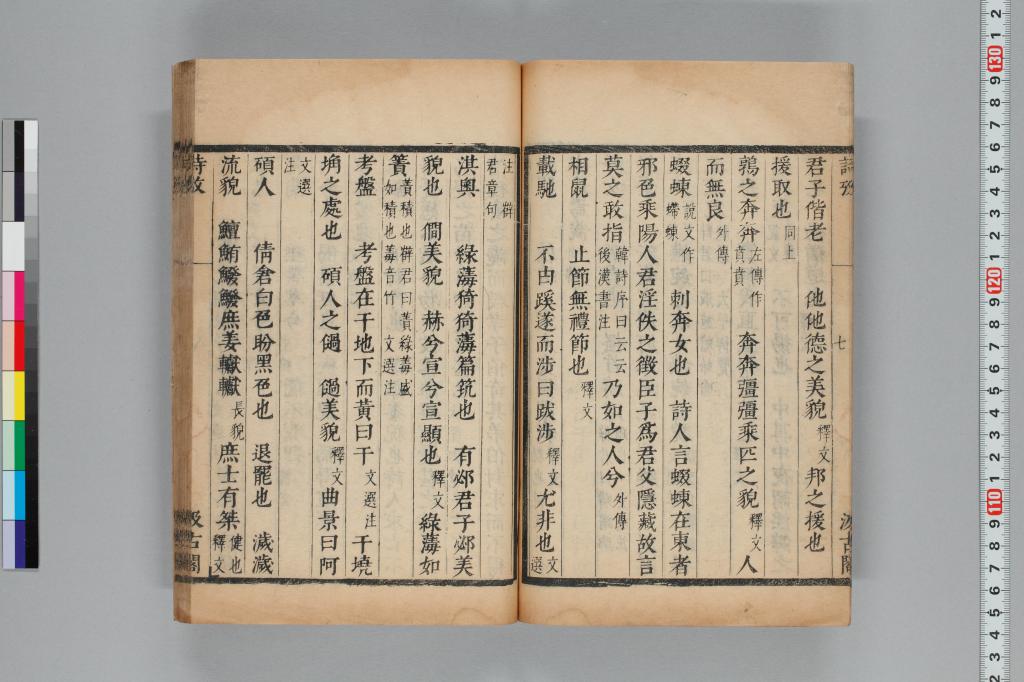 詩攷 七 汲古閣
君子偕老 他他德之美貌釋文 邦之援也
援取也同上
鶉之奔奔左傳作賁賁 奔奔彊彊乘匹之貌釋文 人
而無良外傳
蝃蝀說文作䗖蝀 刺奔女也 詩人言蝃蝀在東者
邪色乘陽人君淫佚之徵臣子為君父隱藏故言
莫之敢指韓詩序曰云云後漢書注 乃如之人兮外傳
相鼠 止節無禮節也釋文
載馳 不由蹊遂而涉曰跋涉釋文 尤非也文選
注 薛君章句
淇奧 綠薄猗猗薄篇筑也 有邲君子邲美
貌也 僩美貌 赫兮宣兮宣顯也釋文 綠薄如
簀簀積也薛君曰簀綠薄盛如積也薄音竹 文選注
考盤 考盤在干地下而黃曰干文選注 干墝
埆之處也 碩人之䈑 䈑美貌釋文 曲景曰阿
文選注
碩人 倩倉白色盼黑色也 退罷也 濊濊
流貌 鱣鮪鱍鱍庶姜巘巘長貌 庶士有桀健也釋文
詩攷 汲古閣